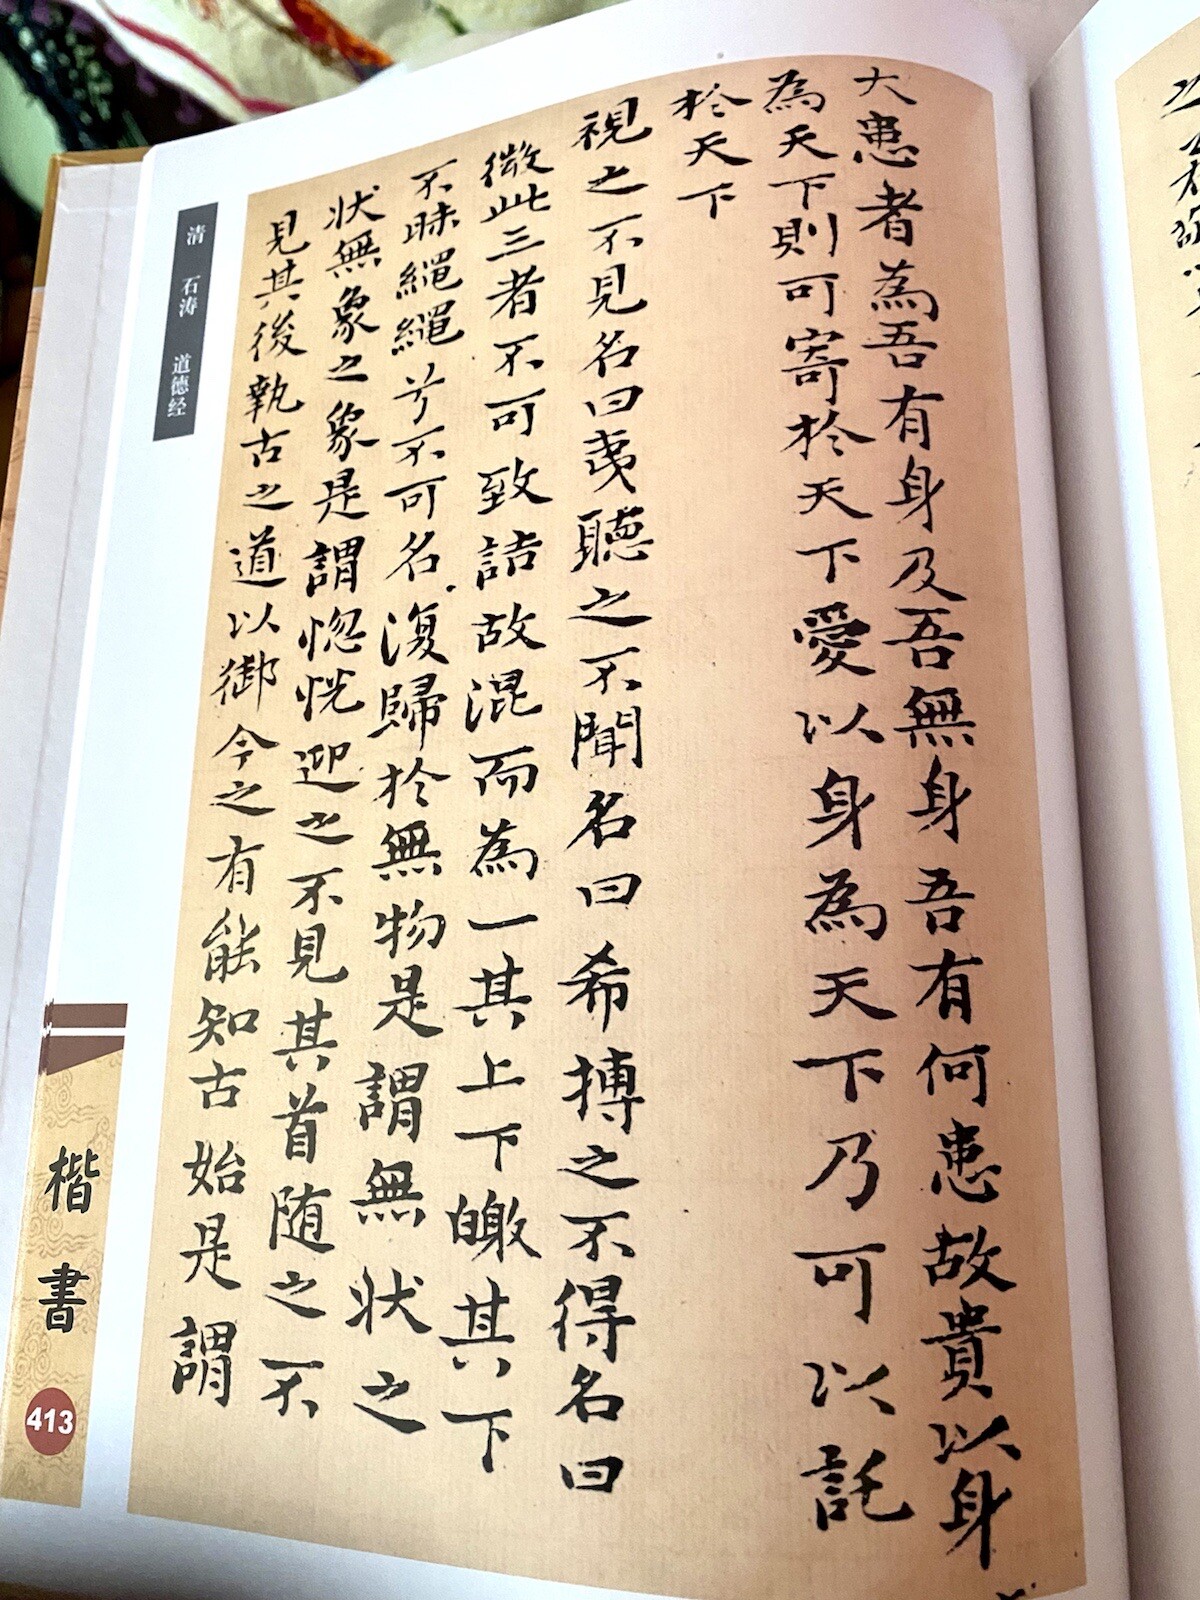 大患者為吾有身及吾無身吾有何患故貴以身
為天下則可寄於天下愛以身為天下乃可以託
於天下
視之不見名曰夷聽之不聞名曰希搏之不得名曰
微此三者不可致詰故混而為一其上下皦其下
不昧繩繩兮不可名復歸於無物是謂無状之
状無象之象是謂惚恍迎之不見其首随之不
見其後執古之道以御今之有能知古始是謂
清 石涛 道德经
楷書
413